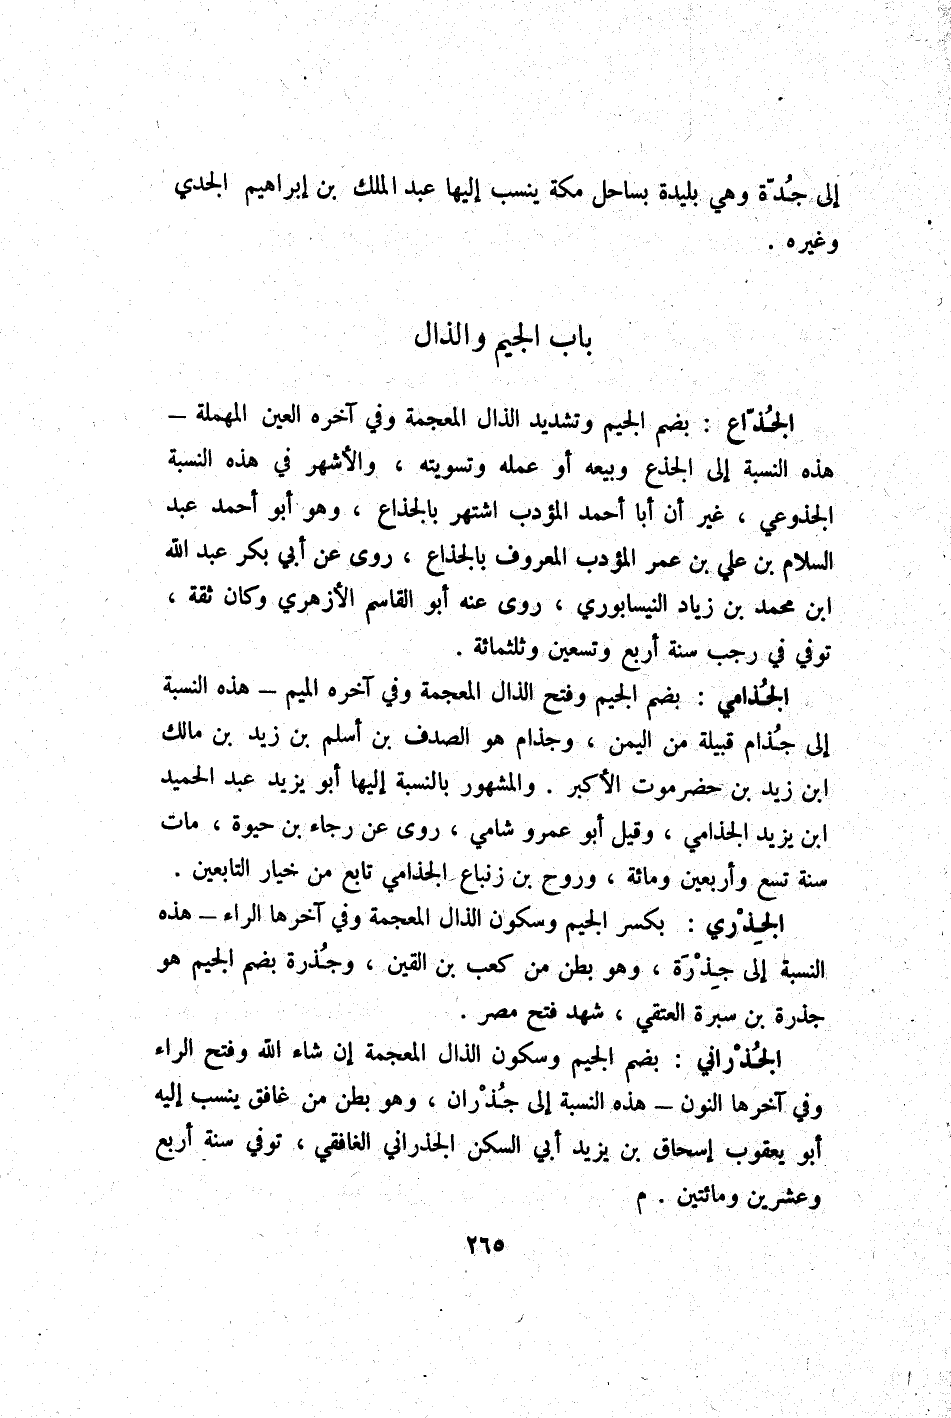 إلى جُدّة وهي بليدة بساحل مكة ينسب إليها عبد الملك بن إبراهيم الجدي
وغيره .
باب الجيم والذال
الجُذّاع : بضم الجيم وتشديد الذال المعجمة وفي آخره العين المهملة —
هذه النسبة إلى الجذع وبيعه أو عمله وتسويته ، والأشهر في هذه النسبة
الجذوعي ، غير أن أبا أحمد المؤدب اشتهر بالجذاع ، وهو أبو أحمد عبد
السلام بن علي بن عمر المؤدب المعروف بالجذاع ، روى عن أبي بكر عبد الله
ابن محمد بن زياد النيسابوري ، روى عنه أبو القاسم الأزهري وكان ثقة ،
توفي في رجب سنة أربع وتسعين وثلثمائة .
الجُذامي : بضم الجيم وفتح الذال المعجمة وفي آخره الميم — هذه النسبة
إلى جُذام قبيلة من اليمن ، وجذام هو الصدف بن أسلم بن زيد بن مالك
ابن زيد بن حضرموت الأكبر . والمشهور بالنسبة إليها أبو يزيد عبد الحميد
ابن يزيد الجذامي ، وقيل أبو عمرو شامي ، روى عن رجاء بن حيوة ، مات
سنة تسع وأربعين ومائة ، وروح بن زنباع الجذامي تابع من خيار التابعين .
الجِذْري : بكسر الجيم وسكون الذال المعجمة وفي آخرها الراء — هذه
النسبة إلى جِذْرَة ، وهو بطن من كعب بن القين ، وجُذرة بضم الجيم هو
جذرة بن سبرة العتقي ، شهد فتح مصر .
الجُذْراني : بضم الجيم وسكون الذال المعجمة إن شاء الله وفتح الراء
وفي آخرها النون — هذه النسبة إلى جُذْران ، وهو بطن من غافق ينسب إليه
أبو يعقوب إسحاق بن يزيد أبي السكن الجذراني الغافقي ، توفي سنة أربع
وعشرين ومائتين . م
٢٦٥